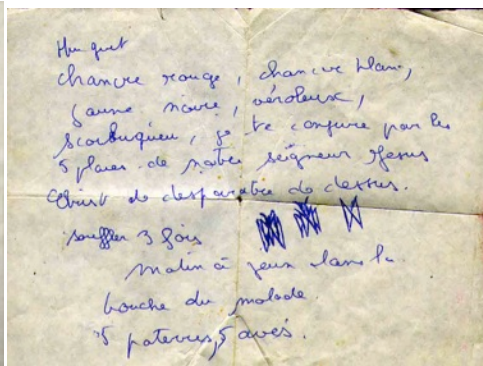 Muguet
chancre rouge, chancre blanc,
jaune noire, véroleux,
scorbuqueu, je te conjure par les
5 plaies de notre seigneur Jesus
Christ de desparaitre de dessus.
souffler 3 fois
matin à jeun dans la
bouche du malade.
5 paters, 5 avés.